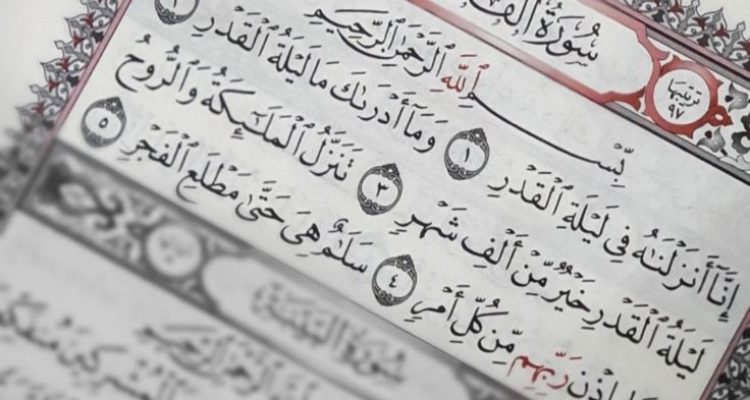 سُورَةُ
ترتيبها ٩٧
بِّسْمِ ٱللَّهِ ٱلرَّحْمَٰنِ ٱلرَّحِيمِ
إِنَّآ أَنزَلْنَٰهُ فِى لَيْلَةِ ٱلْقَدْرِ ١ وَمَآ أَدْرَىٰكَ مَا لَيْلَةُ ٱلْقَدْرِ
لَيْلَةُ ٱلْقَدْرِ خَيْرٌ مِّنْ أَلْفِ شَهْرٍ ٣ تَنَزَّلُ ٱلْمَلَٰٓئِكَةُ وَٱلرُّوحُ
بِإِذْنِ رَبِّهِم مِّن كُلِّ أَمْرٍ ٤ سَلَٰمٌ هِىَ حَتَّىٰ مَطْلَعِ ٱلْفَجْرِ ٥
سُورَةُ البَيِّنَةِ